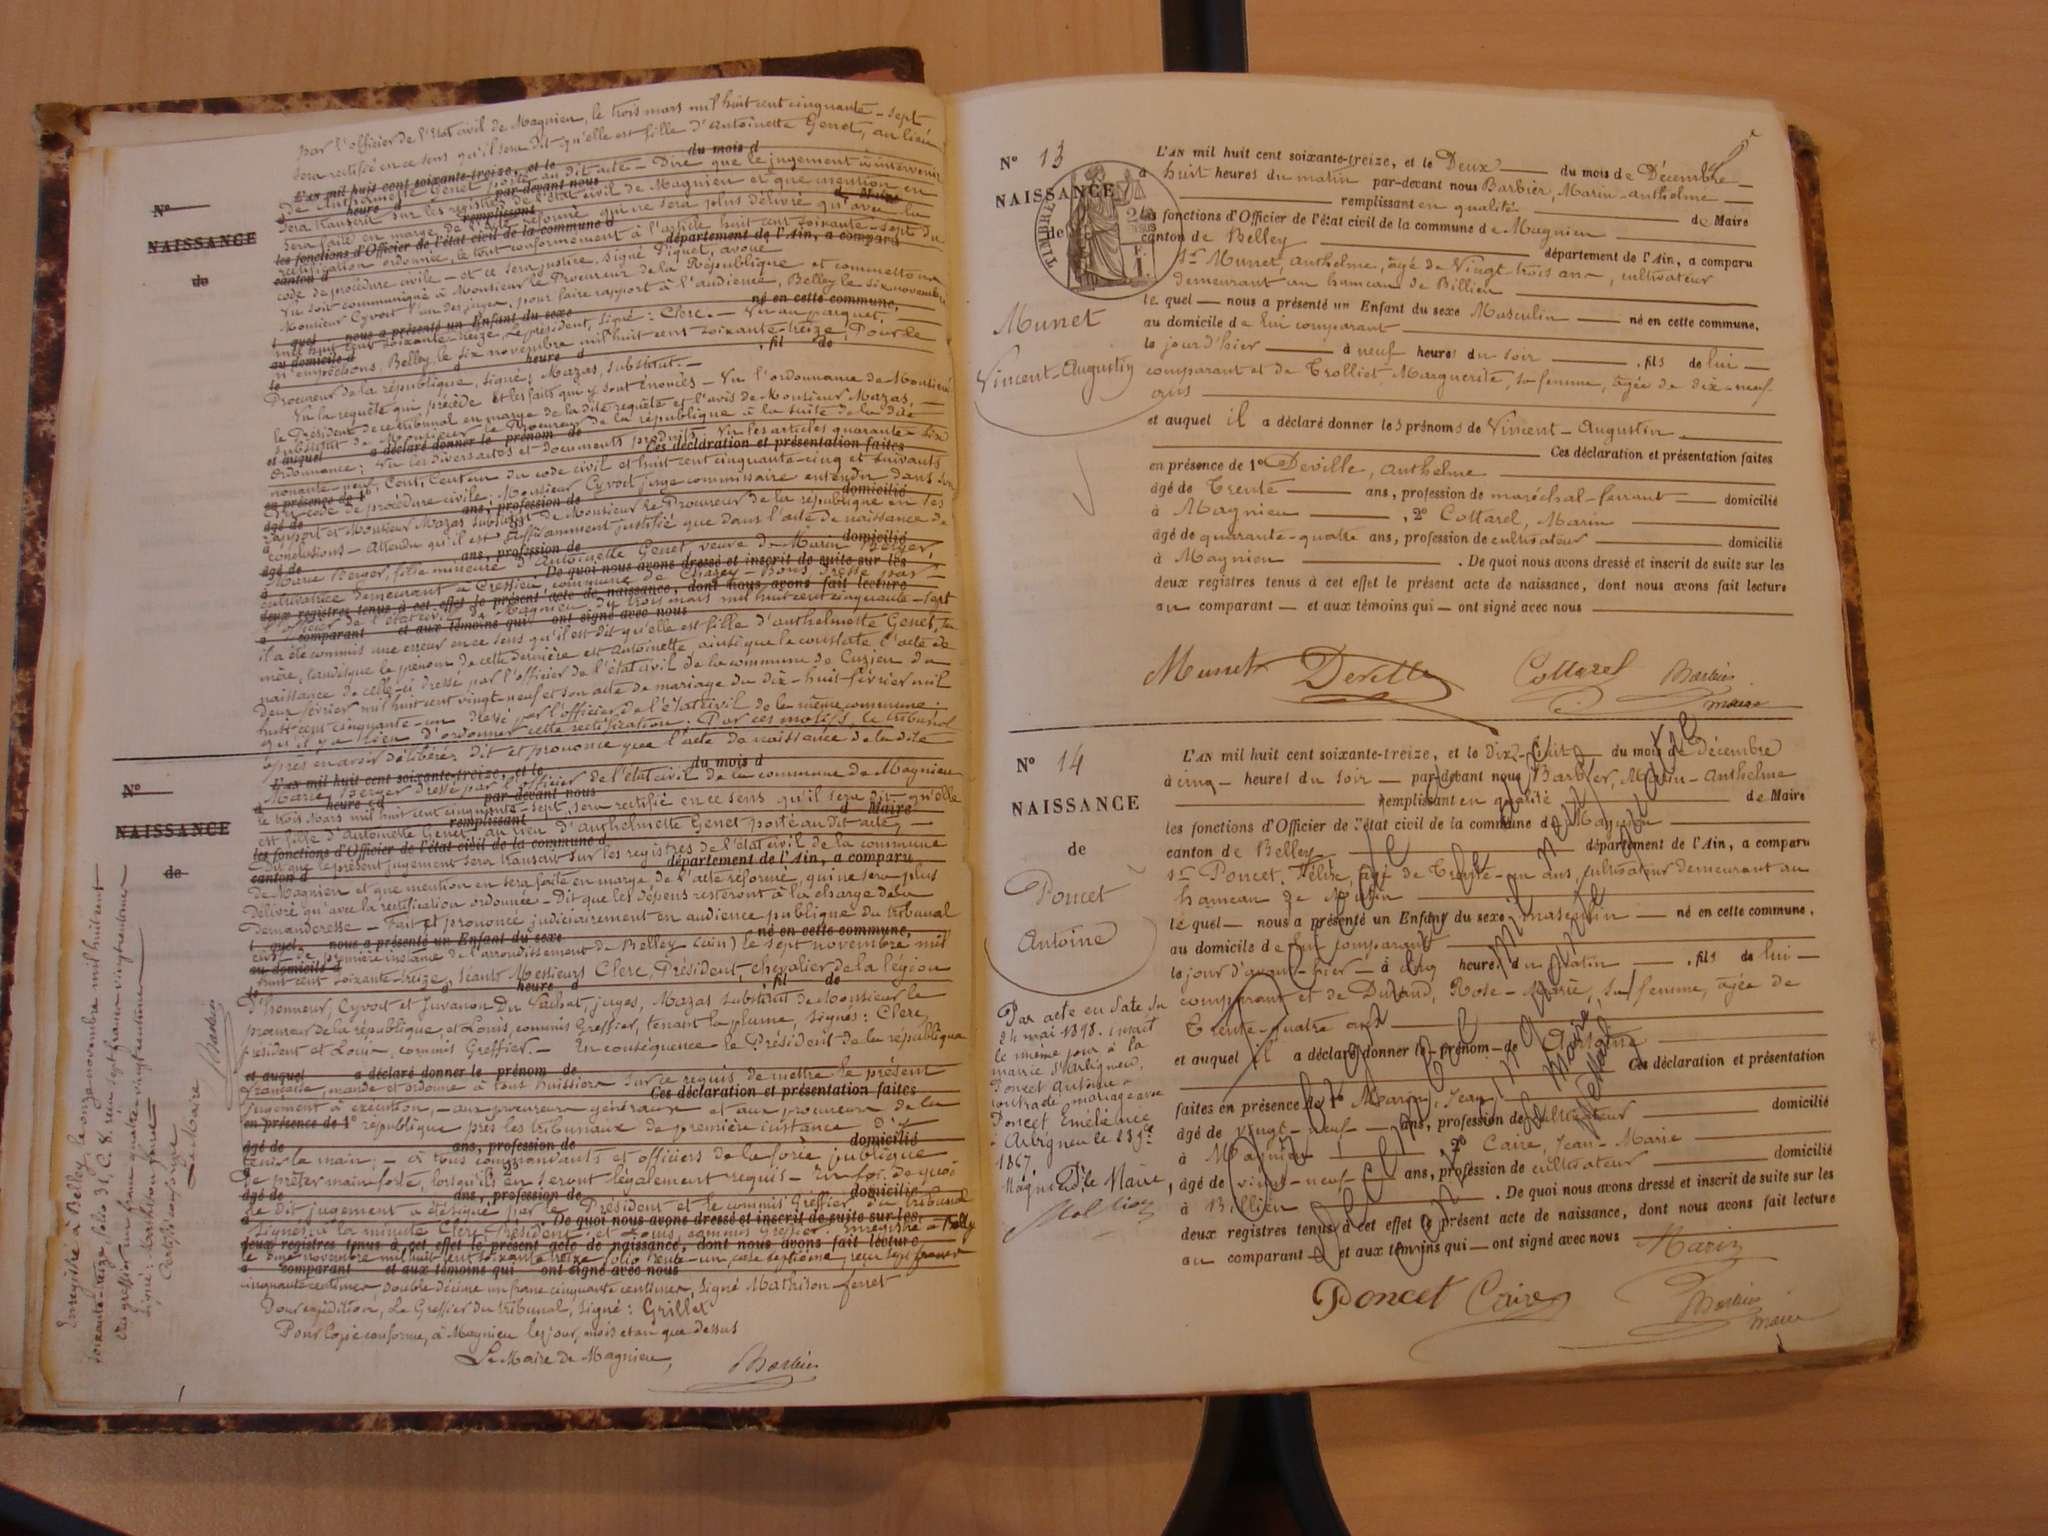 par l'officier de l'Etat civil de Magnieu, le trois mars mil huit cent cinquante-sept
sera rectifié en ce sens qu'il sera dit qu'elle est fille d'Antoinette Genet, au lieu
L'AN mil huit cent soixante-treize, et le du mois d
de Genet porté au dit acte - Dire que le jugement à intervenir
heure d par-devant nous
sera transcrit sur les registres de l'état civil de Magnieu et que mention en
remplissant d Maire
sera faite en marge de l'acte réformé, qui ne sera plus délivré qu'avec la
les fonctions d'Officier de l'état civil de la commune d
rectification ordonnée, le tout conformément à l'article huit cent soixante-sept du
canton d département de l'Ain, a comparu
code de procédure civile - et ce sera justice. Signé Piquet, avoué
Vu soit communiqué à Monsieur le Procureur de la République et commettons
Monsieur Cyvoct l'un des juges, pour faire rapport à l'audience, Belley le six novembre
t quel nous a présenté un Enfant du sexe né en cette commune,
mil huit cent soixante-treize, Le président, signé : Clerc. - Vu au parquet,
au domicile d
n'empêchons, Belley, le six novembre mil huit cent soixante-treize, Pour le
le heure d , fil de
Procureur de la république, signé : Mazas, substitut. -
Vu la requête qui précède et les faits qui y sont énoncés - Vu l'ordonnance de Monsieur
le Président de ce tribunal en marge de la dite requête et l'avis de Monsieur Mazas,
substitut de Monsieur le Procureur de la république à la suite de la dite
et auquel a déclaré donner le prénom de
Ordonnance ; Vu les divers actes et documents produits - Vu les articles quarante
Ces déclaration et présentation faites
nonante neuf, Cent, Cent un du code civil et huit cent cinquante-cinq et suivants
en présence de 1º
du code de procédure civile ; Monsieur Cyvoct juge commissaire entendu dans son
âgé de ans, profession de domicilié
rapport et Monsieur Mazas substitut de Monsieur le Procureur de la république en ses
conclusions - Attendu qu'il est suffisamment justifié que dans l'acte de naissance de
âgé de ans, profession de domicilié
Marie Berger, fille mineure d'Antoinette Genet, veuve de Marin Berger,
à De quoi nous avons dressé et inscrit de suite sur les
cultivatrice demeurant à Cressieu, commune de Chazey-Bons dressé par
deux registres tenus à cet effet le présent acte de naissance, dont nous avons fait lecture
l'officier de l'état civil de Magnieu du trois mars mil huit cent cinquante-sept
a comparant et aux témoins qui ont signé avec nous
il a été commis une erreur en ce sens qu'il est dit qu'elle est fille d'anthelmette Genet, sa
mère, tandis que le prénom de cette dernière est Antoinette, ainsi que le constate l'acte de
naissance de celle-ci dressé par l'officier de l'état civil de la commune de Cuzieu du
deux février mil huit cent vingt neuf et son acte de mariage du dix-huit février mil
huit cent cinquante-un dressé par l'officier de l'état civil de la même commune ;
qu'il y a lieu d'ordonner cette rectification. Par ces motifs, le tribunal
après en avoir délibéré, dit et prononce que l'acte de naissance de la dite
Nº
NAISSANCE
de
L'AN mil huit cent soixante-treize, et le du mois d
Marie Berger dressé par l'officier de l'état civil de la commune de Magnieu
heure d par-devant nous
le trois Mars mil huit cent cinquante-sept, sera rectifié en ce sens qu'il sera dit qu'elle
remplissant d Maire
est fille d'Antoinette Genet, au lieu d'anthelmette Genet porté au dit acte,
les fonctions d'Officier de l'état civil de la commune d
Dit que le présent jugement sera transcrit sur les registres de l'état civil de la commune
canton d département de l'Ain, a comparu
de Magnieu et que mention en sera faite en marge de l'acte réformé, qui ne sera plus
délivré qu'avec la rectification ordonnée - Dit que les dépens resteront à la charge de la
demanderesse - Fait et prononcé judiciairement en audience publique du tribunal
t quel nous a présenté un Enfant du sexe né en cette commune,
civil de première instance de l'arrondissement de Belley (Ain) le sept novembre mil
au domicile d
huit cent soixante-treize, séants Messieurs Clerc, Président, chevalier de la légion
le heure d , fil de
d'honneur, Cyvoct et Juvanon Du Vachat, juges, Mazas substitut de Monsieur le
procureur de la république, et Louis, commis Greffier, tenant la plume, signés : Clerc,
président et Louis, commis Greffier. - En conséquence le Président de la république
et auquel a déclaré donner le prénom de
Française, mande et ordonne à tous huissiers sur ce requis de mettre le présent
Ces déclaration et présentation faites
jugement à exécution, - aux procureurs généraux et aux procureurs de la
en présence de 1º
république près les tribunaux de première instance d'y
âgé de ans, profession de domicilié
tenir la main ; - à tous commandants et officiers de la force publique
de prêter main forte, lorsqu'ils en seront légalement requis - En foi de quoi
âgé de ans, profession de domicilié
le dit jugement a été signé par le Président et le commis Greffier du tribunal
à De quoi nous avons dressé et inscrit de suite sur les
Signés à la minute Clerc, Président, et Louis, commis Greffier Enregistré à Belley
deux registres tenus à cet effet le présent acte de naissance, dont nous avons fait lecture
le onze novembre mil huit cent soixante treize, folio trente-un, case septième, reçu sept francs
a comparant et aux témoins qui ont signé avec nous
cinquante centimes, double décime un franc cinquante centimes, signé Mathison ferret
Pour expédition, Le Greffier du tribunal, signé : Grillet
Pour copie conforme, à Magnieu les jour, mois et an que dessus
Le Maire de Magnieu,
Barbier
Enregistré à Belley, le onze novembre mil huit cent
soixante-treize, folio 31, C. 8. reçu sept francs
Le Maire
Barbier
Nº 13
NAISSANCE
de
Munet
Vincent-Augustin
TIMBRE
L'AN mil huit cent soixante-treize, et le Deux du mois de Décembre
à huit heures du matin par-devant nous Barbier, Marin-anthelme
remplissant en qualité de Maire
les fonctions d'Officier de l'état civil de la commune de Magnieu
canton de Belley département de l'Ain, a comparu
sr Munet, Anthelme, âgé de Vingt trois ans, cultivateur
demeurant au hameau de Billieu
le quel nous a présenté un Enfant du sexe Masculin né en cette commune,
au domicile de lui comparant
le jour d'hier à neuf heures du soir , fils de lui
comparant et de Trolliet Marguerite, sa femme, âgée de dix-neuf
ans
et auquel il a déclaré donner les prénoms de Vincent-Augustin
Ces déclaration et présentation faites
en présence de 1º Deville, anthelme
âgé de Trente ans, profession de maréchal-ferrant domicilié
à Magnieu , 2º Cottarel, Marin
âgé de quarante-quatre ans, profession de cultivateur domicilié
à Magnieu . De quoi nous avons dressé et inscrit de suite sur les
deux registres tenus à cet effet le présent acte de naissance, dont nous avons fait lecture
au comparant et aux témoins qui ont signé avec nous
Munet Deville Cottarel Barbier
maire
Nº 14
NAISSANCE
de
Poncet
Antoine
L'AN mil huit cent soixante-treize, et le dix-huit du mois de Décembre
à cinq heures du soir par-devant nous Barbier, Marin-Anthelme
remplissant en qualité de Maire
les fonctions d'Officier de l'état civil de la commune de Magnieu
canton de Belley département de l'Ain, a comparu
sr Poncet, Félix, âgé de Trente-un ans, cultivateur demeurant au
hameau de
le quel nous a présenté un Enfant du sexe masculin né en cette commune,
au domicile de lui comparant
le jour d'avant-hier à cinq heures du matin , fils de lui
comparant et de Durand, Rose-Marie, sa femme, âgée de
Trente-quatre ans
et auquel il a déclaré donner le prénom de Antoine
Ces déclaration et présentation
faites en présence de 1º Marin, Jean , profession de cultivateur domicilié
âgé de vingt-neuf ans
à Magnieu 2º Caire, Jean-Marie
âgé de vingt-neuf ans, profession de cultivateur domicilié
à Billieu . De quoi nous avons dressé et inscrit de suite sur les
deux registres tenus à cet effet le présent acte de naissance, dont nous avons fait lecture
au comparant et aux témoins qui ont signé avec nous
Marin
Poncet Caire Barbier
maire
Par acte en date du
24 mai 1898. inscrit
le même jour à la
mairie d'Arbignieu,
Poncet Antoine a
contracté mariage avec
Poncet
à Arbignieu le
1867
Le Maire